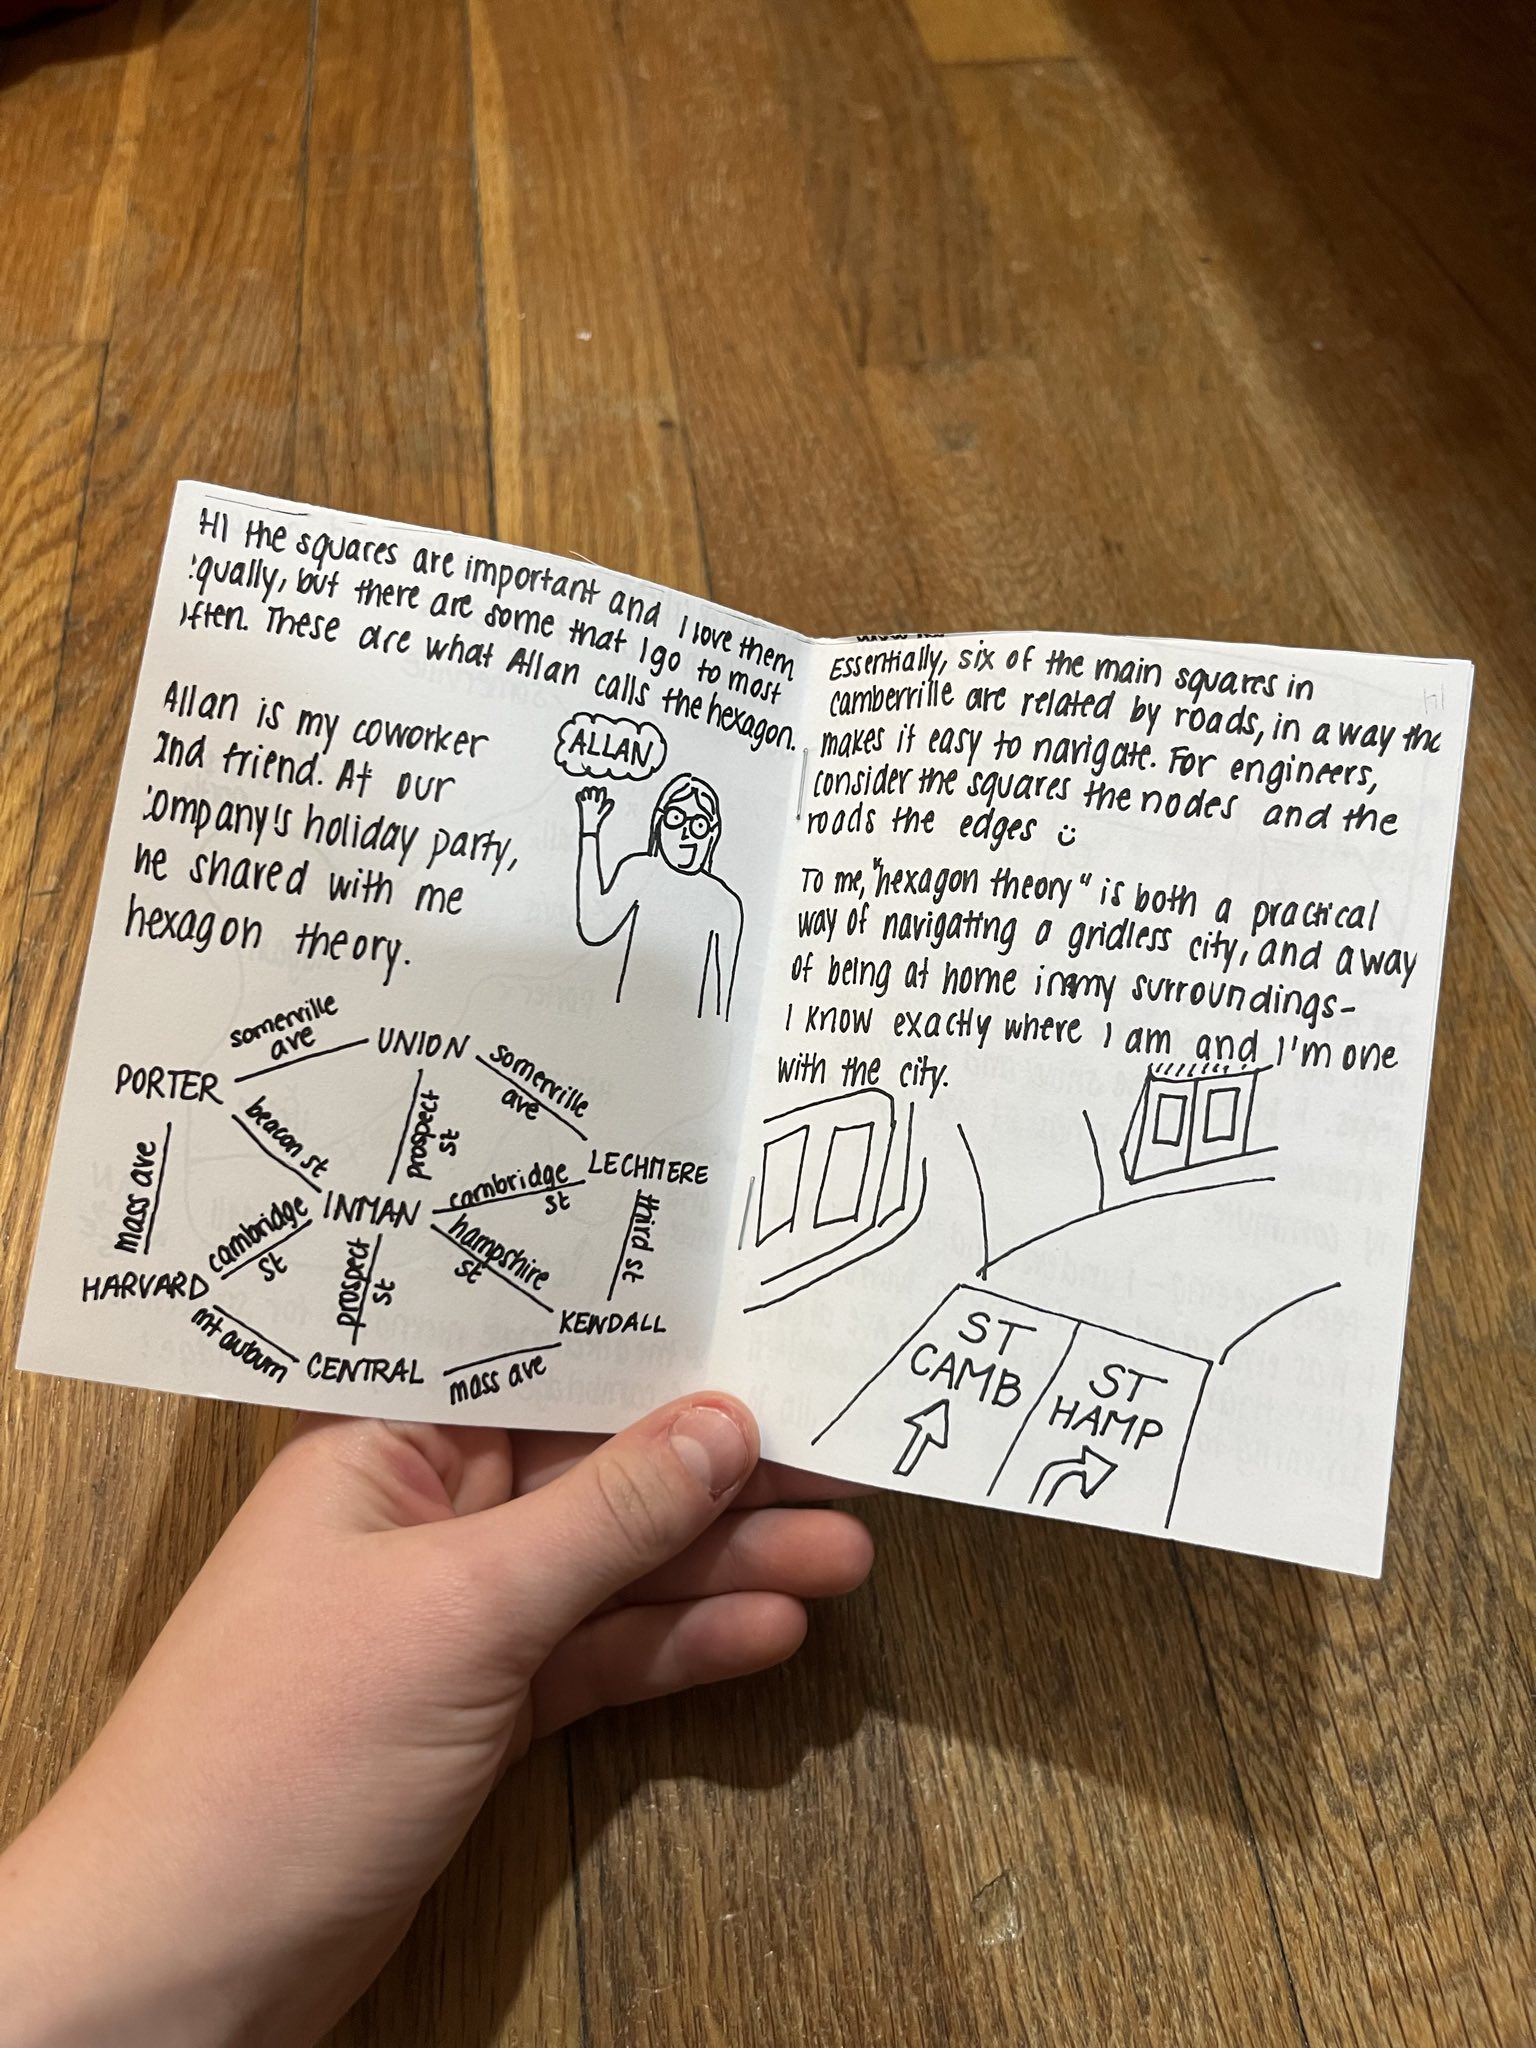 Hi the squares are important and I love them
qually, but there are some that I go to most
ften. These are what Allan calls the hexagon.
Allan is my coworker
and friend. At our
company's holiday party,
he shared with me
hexagon theory.
ALLAN
somerville
ave
UNION
somerville
ave
PORTER
beacon st
prospect
st
LECHMERE
mass ave
INMAN
cambridge
st
third st
cambridge
st
hampshire
st
prospect
st
HARVARD
KENDALL
mt auburn
CENTRAL
mass ave
Essentially, six of the main squares in
camberville are related by roads, in a way the
makes it easy to navigate. For engineers,
consider the squares the nodes and the
roads the edges :)
To me, "hexagon theory" is both a practical
way of navigating a gridless city, and a way
of being at home in my surroundings-
I know exactly where I am and I'm one
with the city.
ST
CAMB
ST
HAMP